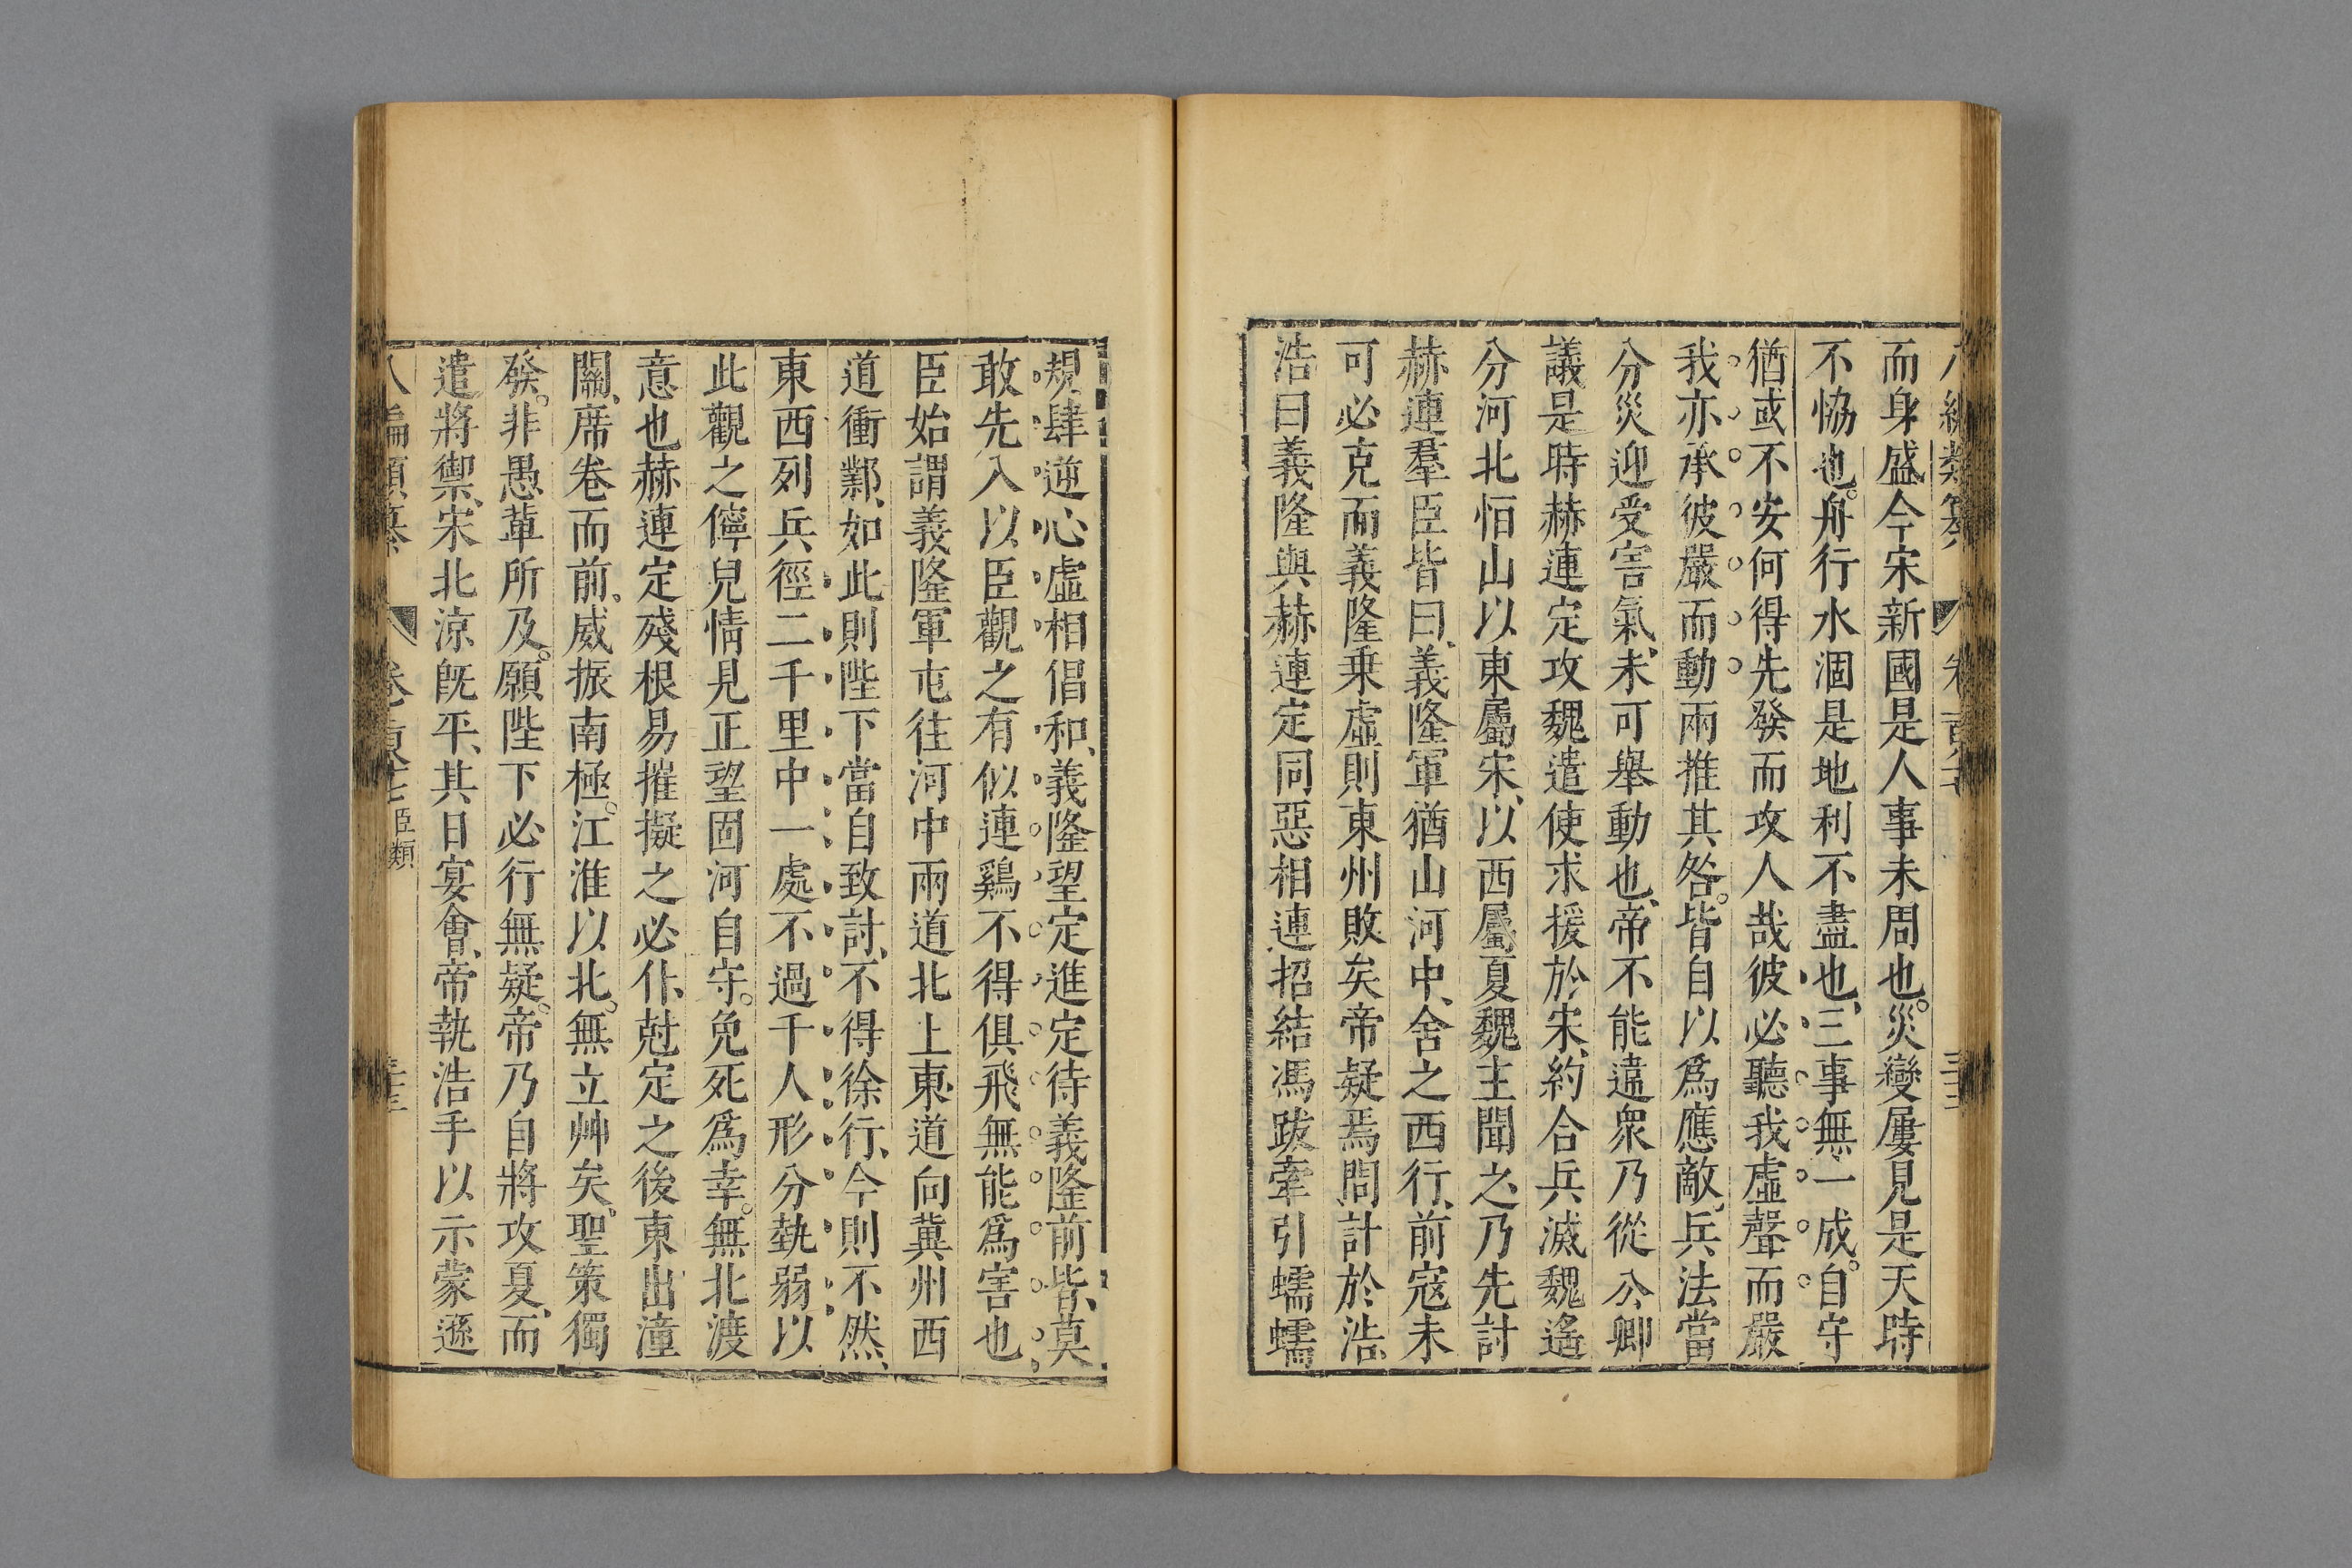 而身盛今宋新國是人事未周也。災變屢見是天時
不恊也。舟行水涸是地利不盡也、三事無一成。自守
猶或不安何得先發而攻人哉彼必聽我虛聲而嚴
我亦承彼嚴而動兩推其咎。皆自以爲應敵、兵法當
分災迎受害氣、未可舉動也、帝不能違衆乃從公卿
議是時赫連定攻魏遣使求援於宋、約合兵滅魏遙
分河北恒山以東屬宋、以西屬夏魏主聞之乃先討
赫連羣臣皆曰、義隆軍猶山河中、舍之西行、前寇未
可必克而義隆乗虛則東州敗矣帝疑焉問計於浩
浩曰義隆與赫連定同惡相連招結馮跋牽引蠕蠕
規肆逆心虛相倡和、義隆望定進定待義隆前皆、莫
敢先入以臣觀之有似連鷄不得俱飛無能爲害也
臣始謂義隆軍屯往河中兩道北上東道向冀州西
道衝鄴、如此則陛下當自致討、不得徐行、今則不然、
東西列兵徑二千里中一處不過千人形分埶弱以
此觀之儜兒情見正望固河自守。免死爲幸。無北渡
意也赫連定殘根易摧擬之必仆、尅定之後東出潼
關、席卷而前。威振南極。江淮以北。無立艸矣。聖策獨
發。非愚蕐所及。願陛下必行無疑。帝乃自將攻夏、而
遣將禦、宋北涼旣平、其日宴會、帝執浩手以示蒙遜
八編類纂 卷 臣類